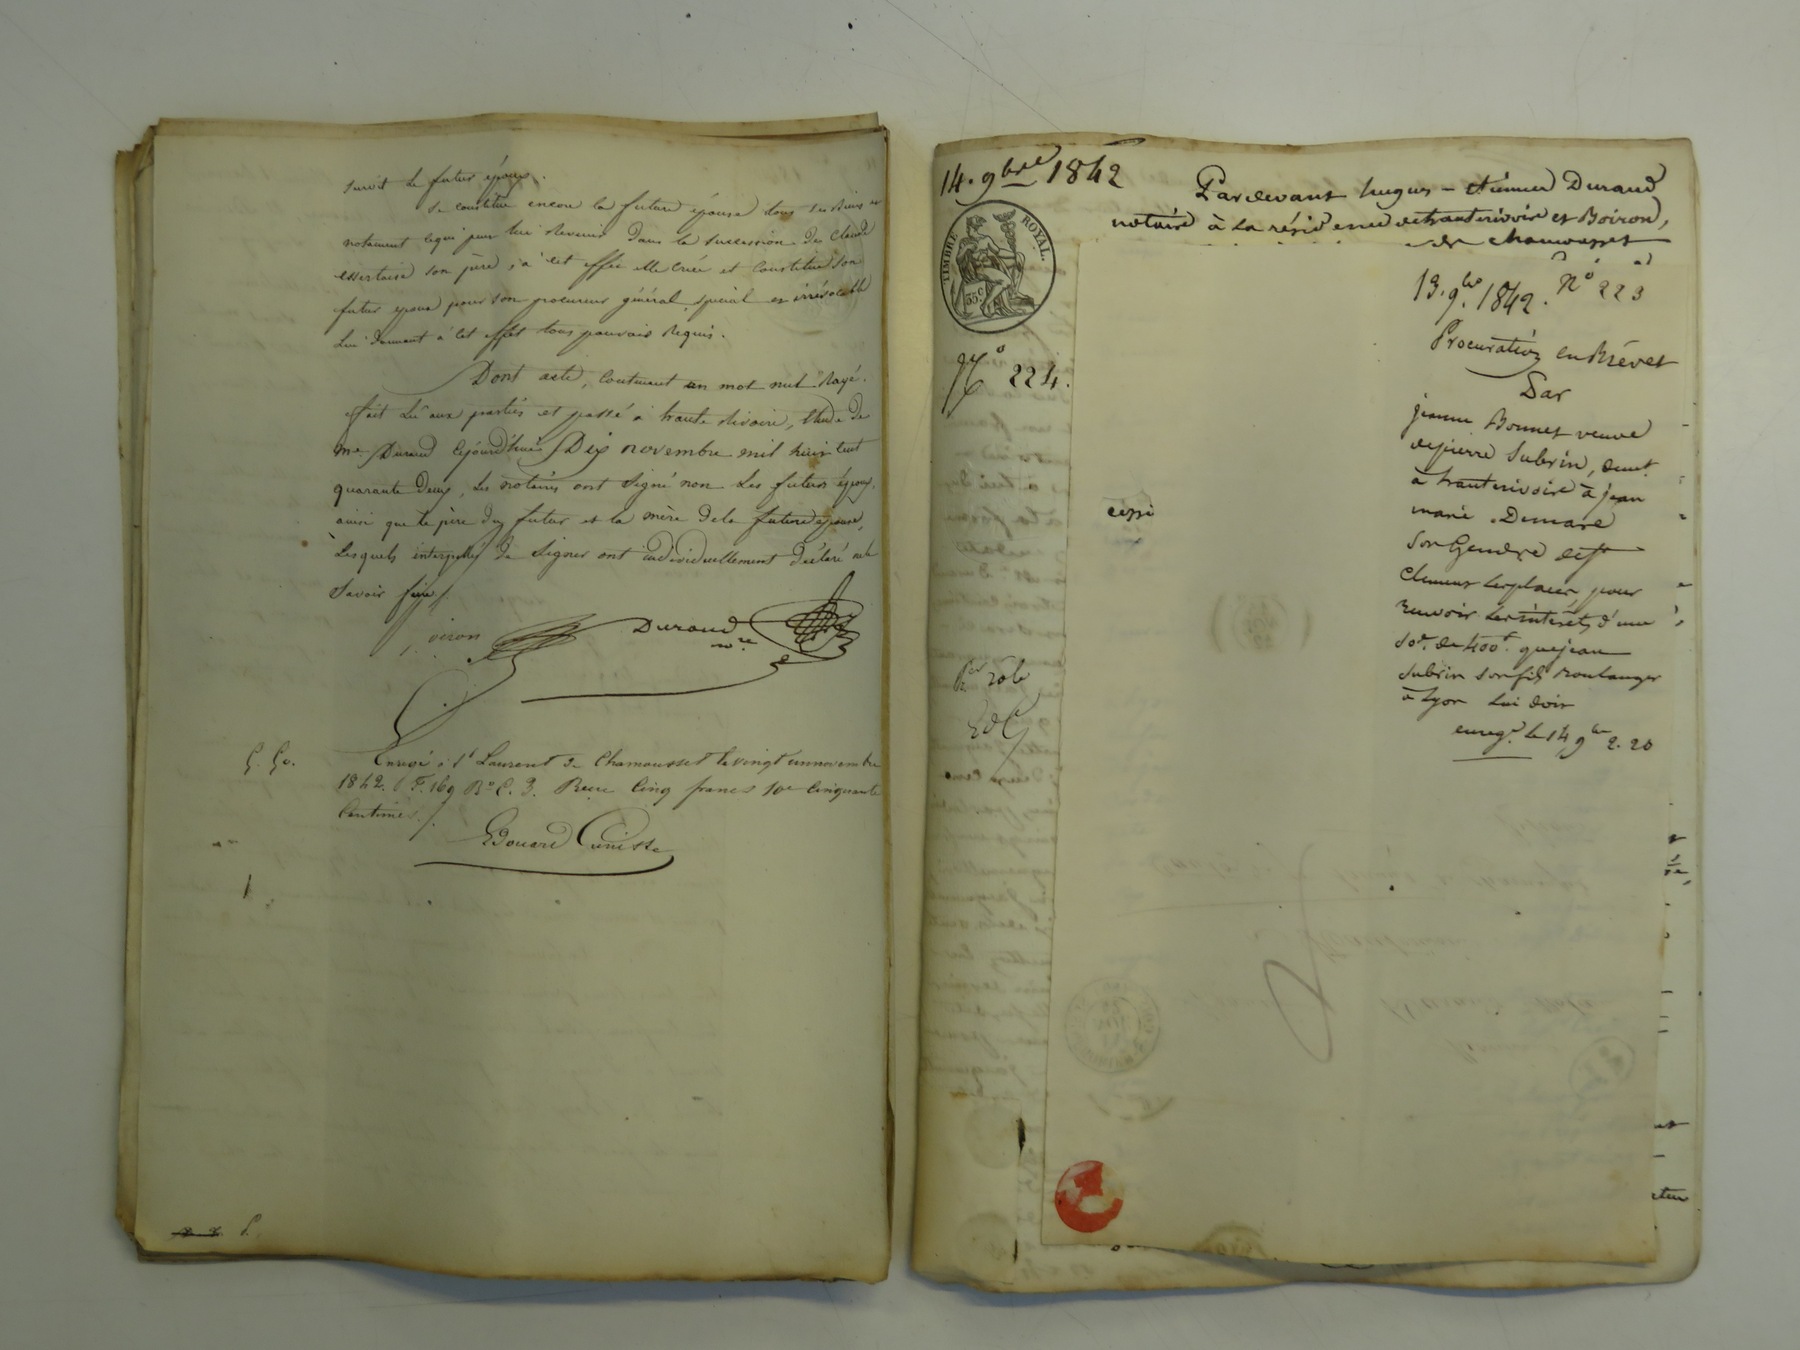 suroit le futur époux.
se constitue encore la future épouse tous ses Biens et
notament ce qui peut lui Revenir dans la succession de Claude
essertaise son père, à cet effet elle Créée et Constitue son
futur epoux pour son procureur général, special et irrévocable
Lui donnant à cet effet tous pouvoirs Requis.
Dont acte, Contenant un mot nul Rayé.
fait Lu aux parties et passé à haute Rivoire, étude de
me Durand Cejourd'hui Dix novembre mil huit cent
quarante Deux, Les notaires ont Signé non Les futurs époux,
ainsi que le père du futur et la mère de la future épouse,
Lesquels interpellés de Signer ont individuellement déclaré ne le
Savoir faire.
Boiron Durand
nre
G. Go.
Enrgé à St Laurent de Chamousset le vingt un novembre
1842. F. 169 Ro C. 3. Reçu Cinq francs 10e Cinquante
Centimes.
Edouard Cunisse
14. 9bre 1842
TIMBRE ROYAL.
35 c
No 224.
Pardevant hugues - étienne Durand
notaire à la résidence de hauterivoire et Boiron,
de chamousset
13. 9bre 1842. No 223
Procuration en Brévet
Par
jeanne Bonnet veuve
de pierre Subrin, demt
à hauterivoire à jean
marie Demare
Son Gendre de St
Clement les places pour
recevoir les intérêts d'une
so. de 400f. que jean
Subrin son fils Boulanger
à Lyon Lui doit
enregt. le 14 9bre 2. 20